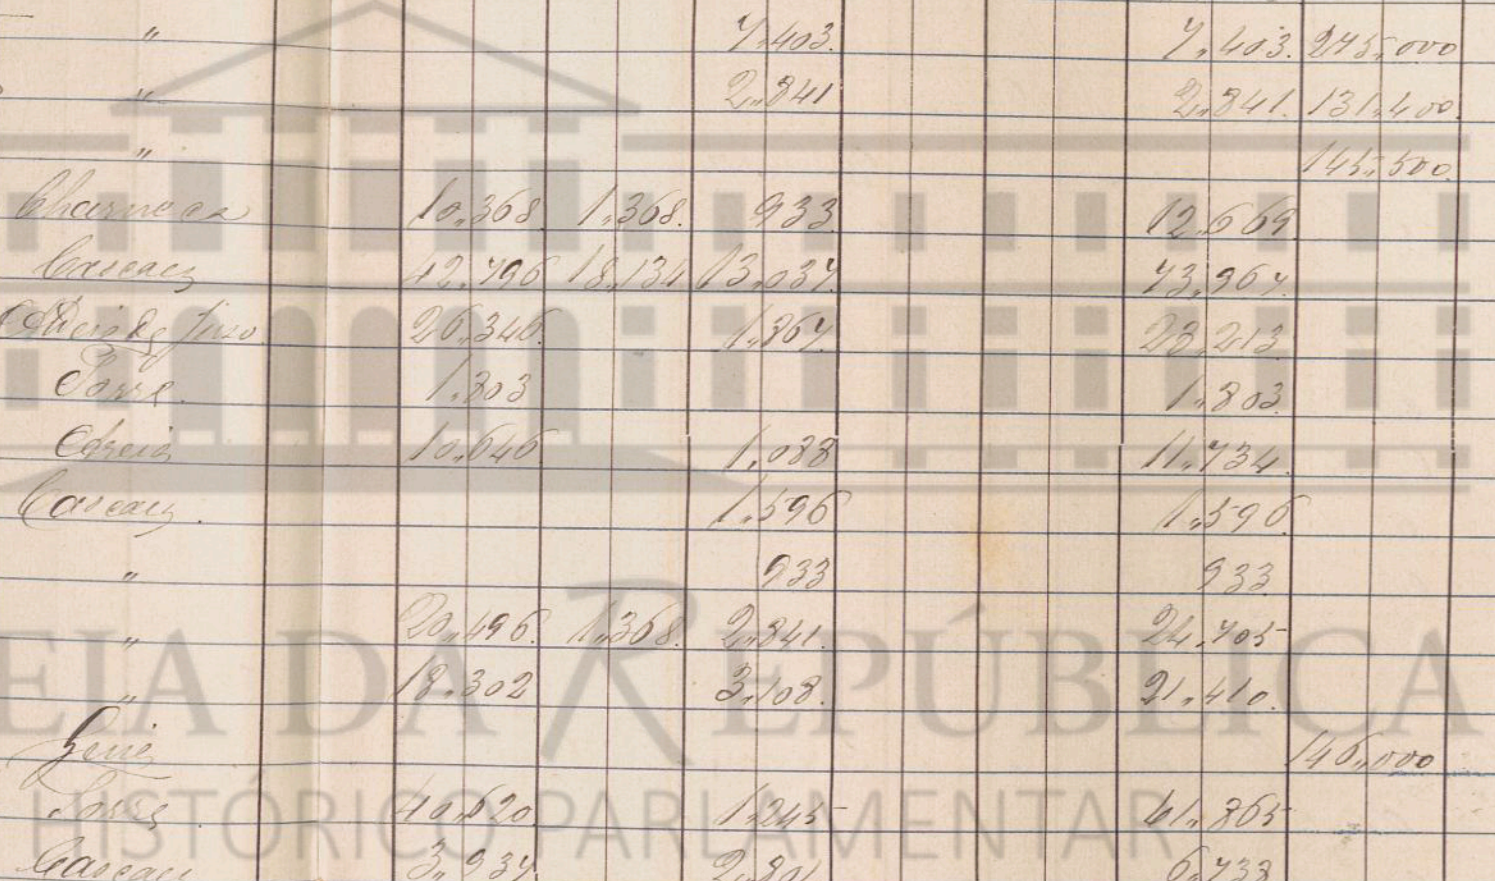 " 7,,403. 7,,403. 245,,000
" 2,,841 2,,841. 131,,400.
" 145,,500.
Charneca 10,,368 1,,368. 933 12,,669.
Cascaes 42,,796 18,,134 13,,037. 73,,967.
Aldeia de Juzo. 26,,346. 1,,867. 28,,213.
Torre. 1,,803 1,,803.
Areia 10,,646 1,,088 11,,734.
Cascaes. 1,,596 1,,596.
" 933 933.
" 20,,496. 1,,368. 2,,841. 24,,705
" 18,,302 3,,108. 21,,410.
146,,000
Torre. 40,,620. 1,,245 41,,865
Cascaes 3,,937. 2,,801 6,,738
EIA DA REPÚBLICA
HISTÓRICO PARLAMENTAR